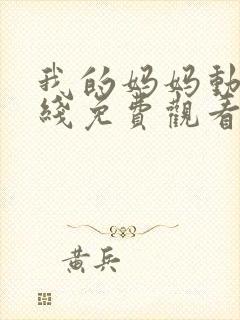 我的妈妈動
綫免費觀看
黄兵